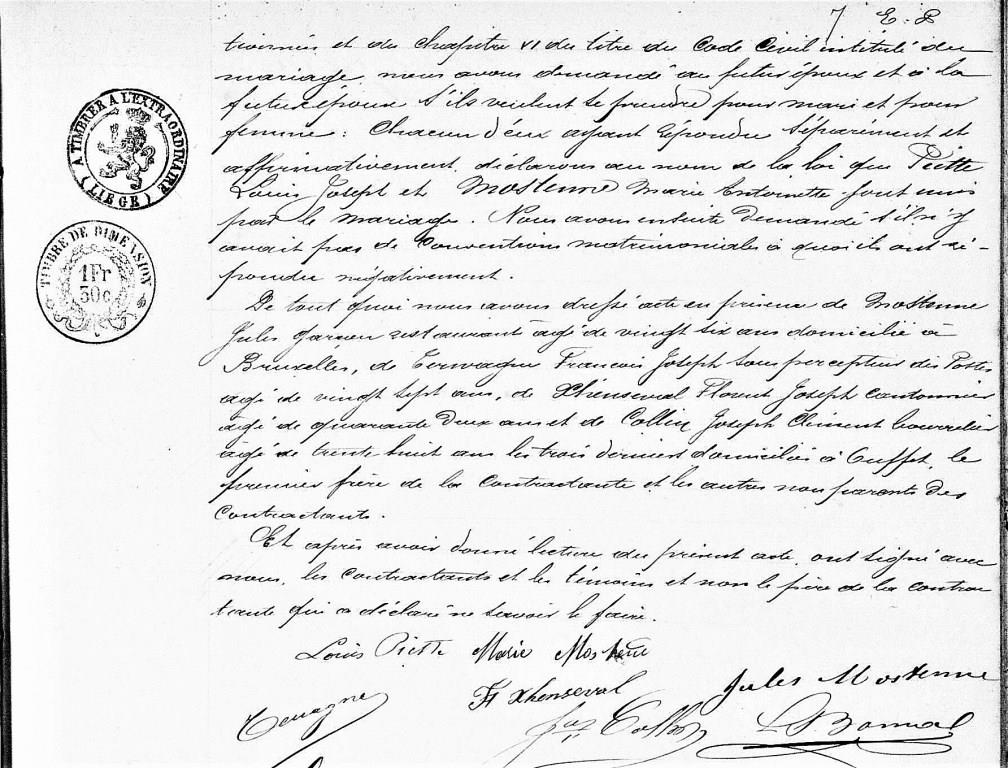 7 E. L
tionnés et du chapitre VI du titre du Code Civil intitulé du
mariage, nous avons demandé au futur époux et à la
future épouse s'ils veulent se prendre pour mari et pour
femme : Chacun d'eux ayant répondu séparément et
affirmativement, déclarons au nom de la loi que Piette
Louis Joseph et Mostenne Marie Antoinette sont unis
par le mariage. Nous avons ensuite demandé s'il n'y
avait pas de conventions matrimoniales à quoi ils ont ré-
pondu négativement.
De tout quoi nous avons dressé acte en présence de Mostenne
Jules garçon restaurant âgé de vingt six ans domicilié à
Bruxelles, de Terwagne François Joseph sous percepteur des Postes
âgé de vingt sept ans, de Xhenseval Florent Joseph cantonnier
âgé de quarante deux ans et de Collin Joseph Clément bourrelier
âgé de trente huit ans les trois derniers domiciliés à Ouffet, le
premier frère de la contractante et les autres non parents des
contractants.
Et après avoir donné lecture du présent acte, ont signé avec
nous, les contractants et les témoins et non le père de la contrac
tante qui a déclaré ne savoir le faire.
Louis Piette Marie Mostenne
F Xhenseval Jules Mostenne
Terwagne Jos Collin L. Bonmal
A TIMBRER A L'EXTRAORDINAIRE
(LIÉGE)
TIMBRE DE DIMENSION
1Fr
30c